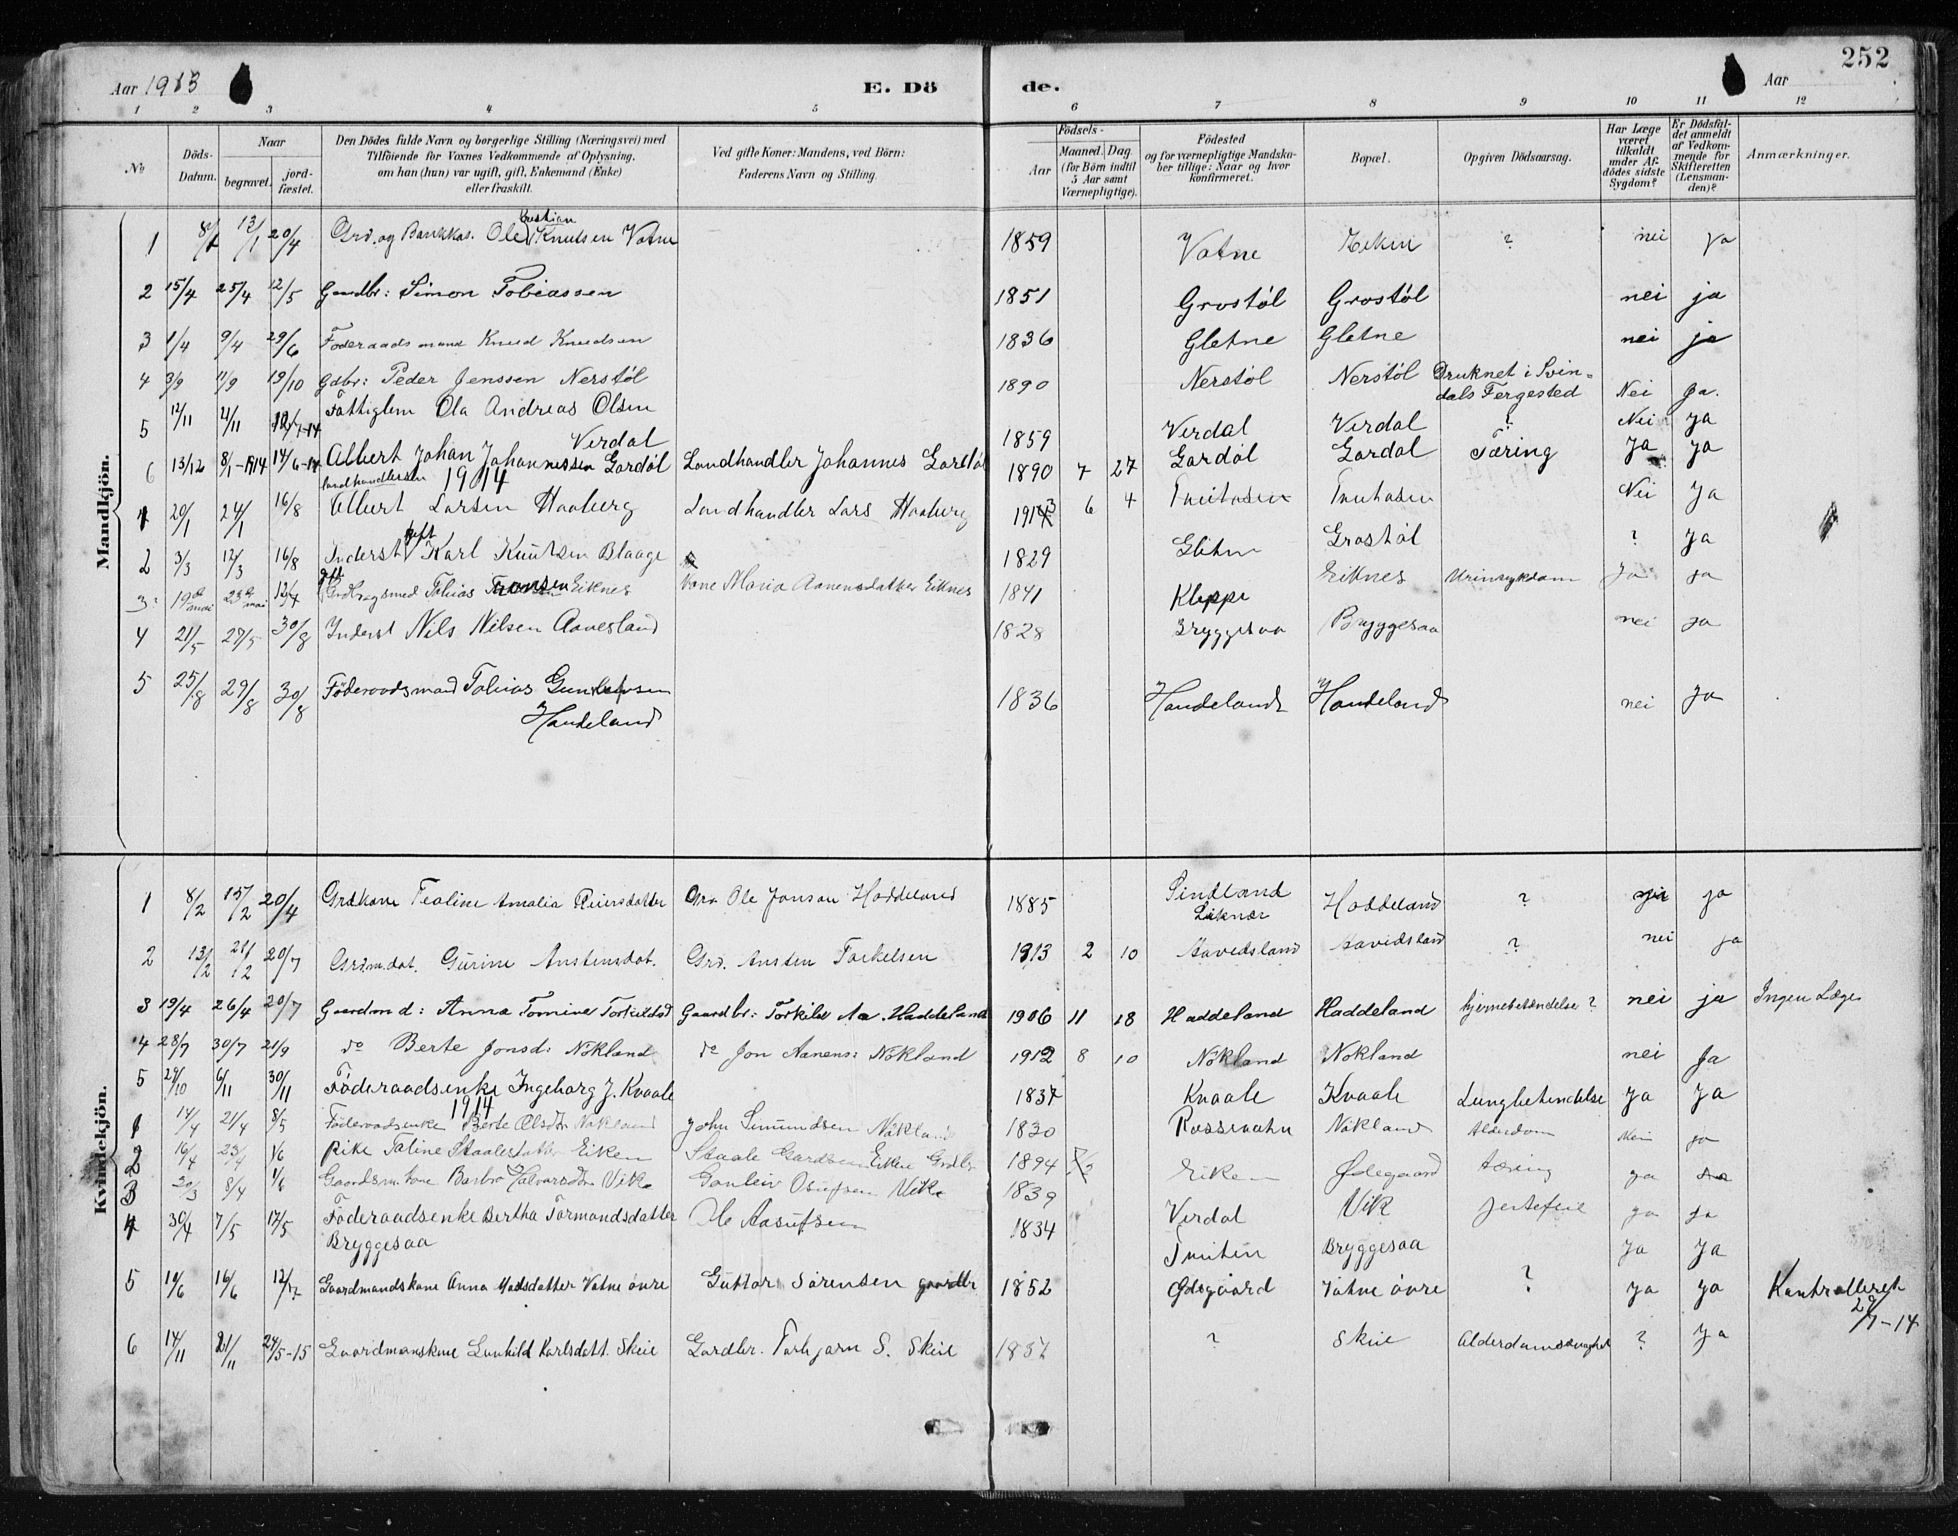 252
Aar 1913 E. Dö de. Aar
1 2 3 4 5 6 7 8 9 10 11 12
No
Döds-Datum.
Naar begravet. jord-fæstet.
Den Dödes fulde Navn og borgerlige Stilling (Næringsvei) med
Tilföiende for Voxnes Vedkommende af Oplysning,
om han (hun) var ugift, gift, Enkemand (Enke)
eller fraskilt.
Ved gifte Koner: Mandens, ved Börn:
Faderens Navn og Stilling.
Födsels-
Aar Maaned. Dag.
(for Börn indtil
5 Aar samt
Værnepligtige).
Födested
og for værnepligtige Mandska-
ber tillige: Naar og hvor
konfirmeret.
Bopæl.
Opgiven Dödsaarsag.
Har Læge
været
tilkaldt
under Af-
dödes sidste
Sygdom?
Er Dödsfal-
det anmeldt
af Vedkom-
mende for
Skifteretten
(Lensman-
den)?
Anmærkninger.
Mandkjön.
1 12/1 20/4 Grd. og Bankkas. Ole Kristian Knutsen Vatne 1859 Vatne Eiken ? nei ja
2 15/4 25/4 12/5 Gaardbr: Simon Tobiassen 1851 Grostøl Grostøl nei ja
3 1/4 9/4 29/6 Föderaadsmand Knud Knudsen 1836 Gletne Gletne nei ja
4 3/9 11/9 19/10 Gdbr: Peder Jenssen Nerstøl 1890 Nerstøl Nerstøl Druknet i Svin=
dals Fergested Nei Ja.
5 12/11 21/11 Fattiglem Ola Andreas Olsen
Verdal 1859 Verdal Verdal ? Nei Ja
6 13/12 8/1-1914 14/6-14 Albert Johan Johannessen Gardøl Landhandler Johannes Gardøl 1890 7 27 Gardøl Gardøl Tæring Ja Ja
1914
1 20/1 24/1 16/8 Albert Larsen Haaberg Landhandler Lars Haaberg 1913 6 4 Nei Ja
2 3/3 12/3 16/8 Inderst gift Karl Knutsen Blaage 1829 Gletne Grostøl ? Ja
3 19de mai 23de mai gift Tobias Eiknes Kone Maria Aanensdatter Eiknes 1841 Kleppe Eiknes Urinsykdom Ja Ja
4 21/5 27/5 30/8 Inderst Nils Nilsen Aavesland 1828 Bryggesaa Bryggesaa nei Ja
5 25/8 29/8 30/8 Föderaadsmand Tobias Gunleifsen
Handeland 1836 Handeland Handeland nei Ja
Kvindekjön.
1 8/2 15/2 20/4 Grdkone Teoline Amalia Reiersdatter Grd Ole Jonson Haddeland 1885 Sindland
Liknes Haddeland ? ja
2 13/2 21/2 20/7 Grdm.dat. Gurine Anstensdat. Grd. Ansten Torkelsen 1913 2 10 Aavidsland Aavidsland ? nei ja
3 19/4 26/4 20/7 Gaardmd: Anna Tomine Torkildsd Gaardbr: Torkild Aa. Haddeland 1906 11 18 Haddeland Haddeland hjernebetændelse? nei ja Ingen Læge
4 28/7 30/7 21/9 do Berte Jonsd: Nökland do Jon Aanens: Nökland 1912 8 10 Nökland Nökland nei Ja
5 29/10 6/11 30/11 Föderaadsenke Ingeborg J. Kvaale 1837 Kvaale Kvaale Lungbetendelse Ja Ja
1914
1 14/4 21/4 8/5 Föderaadsenke Berte Olsdtr Nökland John Simundsen Nökland 1830 Nökland Alderdom Nei ja
2 16/4 23/4 1/6 Pike Taline Staalesdatter Eiken Staale Eiken Grdbr 1894 Eiken Ødegaard tæring ja
3 20/3 8/4 1/6 Gaardsm. kone Barbro Halvorsdtr Vike Gunleiv Osufsen Vike 1839 Verdal Vik hjertefeil ja ja
4 30/4 7/5 17/5 Föderaadsenke Bertha Tormandsdatter
Bryggesaa Ole Aasufsen 1834 Tveiten Bryggesaa Ja Ja
5 10/6 16/6 12/7 Gaardmandskone Anna Madsdatter Vatne övre Guttor Sörensen gaardbr 1852 Ødegaard Vatne övre ? Ja Ja Kontrolleret
29/7-14
6 14/11 21/11 24/5-15 Gaardmanskone Gunhild Karlsdatt. Skeie Gardbr. Torbjørn S. Skeie 1857 ? Skeie Alderdomssvaghet ? Ja